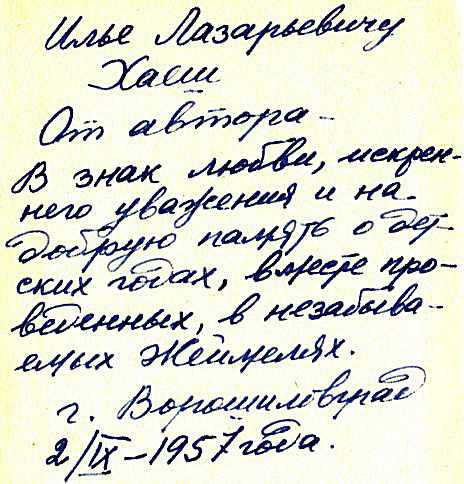 Илье Лазарьевичу
Хаеш
От автора –
В знак любви, искрен-
него уважения и на
добрую память о дет-
ских годах, вместе про-
веденных, в незабыва-
емых Жеймелях.
г. Ворошиловград
2/IX – 1957 года.